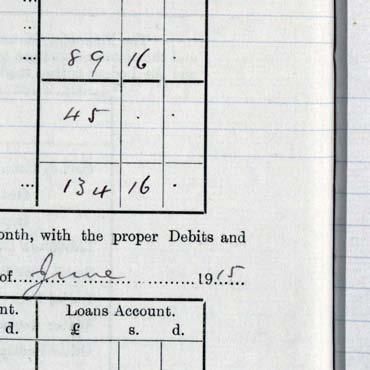 ..
... 89 16 .
45 . .
... 134 16 .
onth, with the proper Debits and
of...June............1915......
nt. Loans Account.
d. £ s. d.